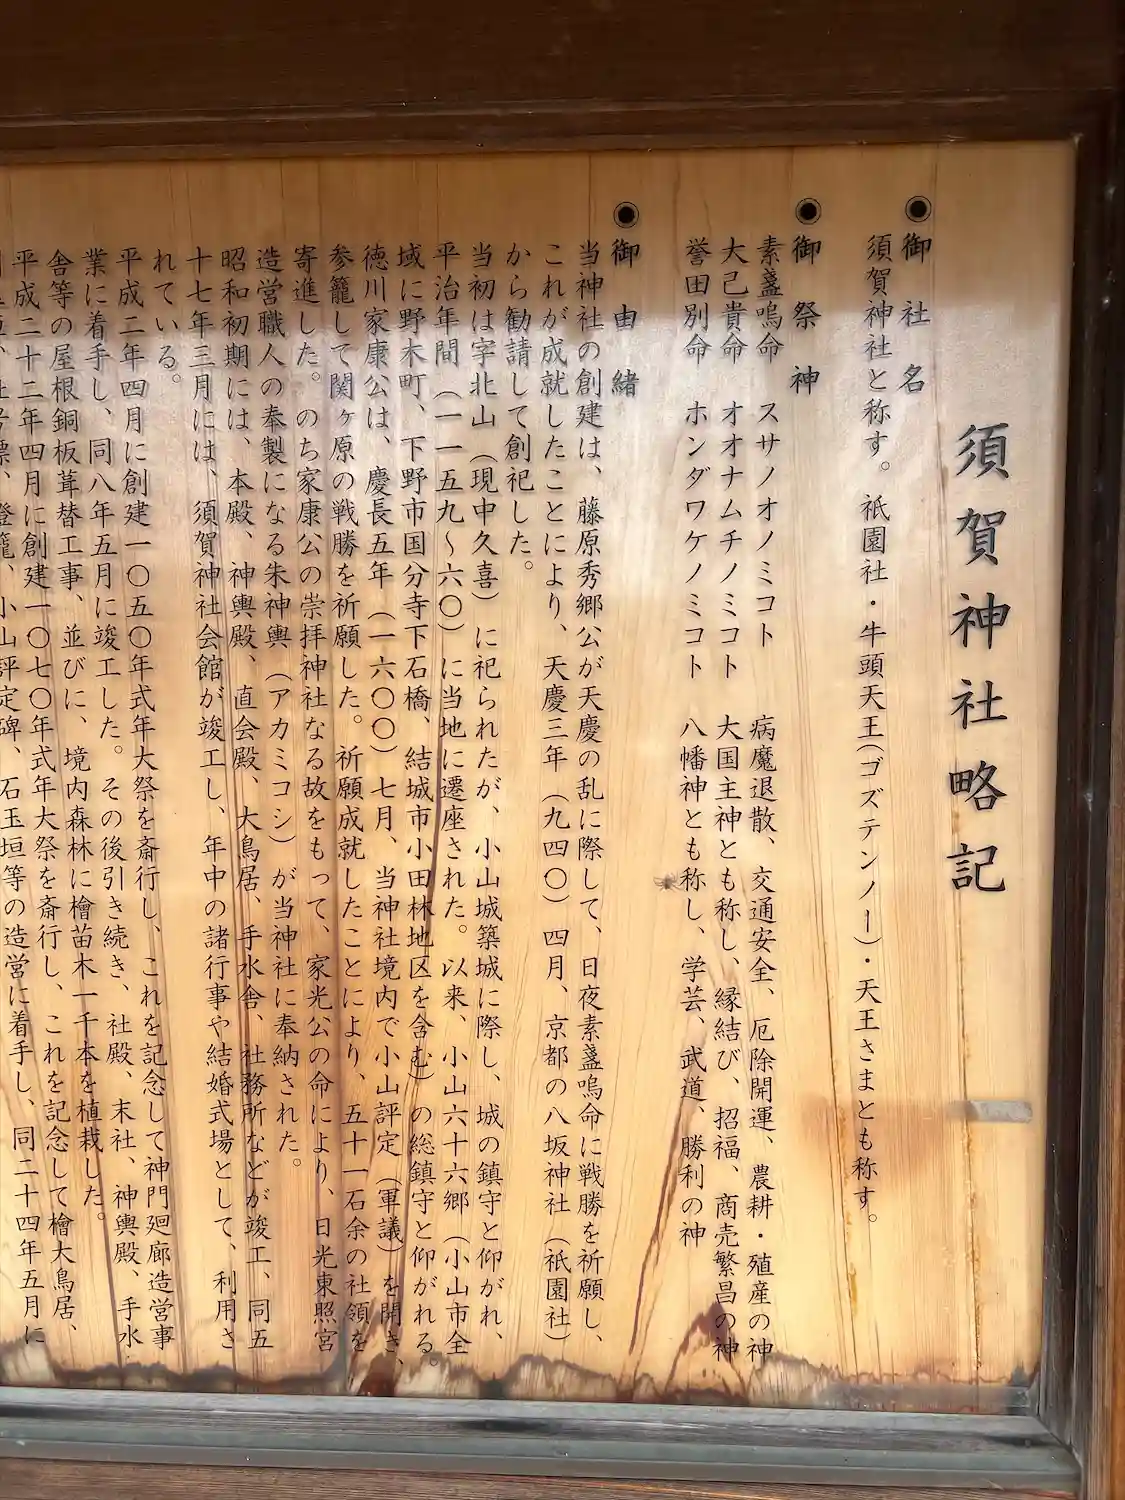 須賀神社略記
◉御社名
須賀神社と称す。祇園社・牛頭天王(ゴズテンノー)・天王さまとも称す。
◉御祭神
素盞嗚命 スサノオノミコト 病魔退散、交通安全、厄除開運、農耕・殖産の神
大己貴命 オオナムチノミコト 大国主神とも称し、縁結び、招福、商売繁昌の神
誉田別命 ホンダワケノミコト 八幡神とも称し、学芸、武道、勝利の神
◉御由緒
当神社の創建は、藤原秀郷公が天慶の乱に際して、日夜素盞嗚命に戦勝を祈願し、
これが成就したことにより、天慶三年(九四〇)四月、京都の八坂神社(祇園社)
から勧請して創祀した。
当初は字北山(現中久喜)に祀られたが、小山城築城に際し、城の鎮守と仰がれ、
平治年間(一一五九～六〇)に当地に遷座された。以来、小山六十六郷(小山市全
域に野木町、下野市国分寺下石橋、結城市小田林地区を含む)の総鎮守と仰がれる。
徳川家康公は、慶長五年(一六〇〇)七月、当神社境内で小山評定(軍議)を開き、
参籠して関ヶ原の戦勝を祈願した。祈願成就したことにより、五十一石余の社領を
寄進した。のち家康公の崇拝神社なる故をもって、家光公の命により、日光東照宮
造営職人の奉製になる朱神輿(アカミコシ)が当神社に奉納された。
昭和初期には、本殿、神輿殿、直会殿、大鳥居、手水舎、社務所などが竣工、同五
十七年三月には、須賀神社会館が竣工し、年中の諸行事や結婚式場として、利用さ
れている。
平成二年四月に創建一〇五〇年式年大祭を斎行し、これを記念して神門廻廊造営事
業に着手し、同八年五月に竣工した。その後引き続き、社殿、末社、神輿殿、手水
舎等の屋根銅板葺替工事、並びに、境内森林に檜苗木一千本を植栽した。
平成二十二年四月に創建一〇七〇年式年大祭を斎行し、これを記念して檜大鳥居、
社号標、燈籠、小山評定碑、石玉垣等の造営に着手し、同二十四年五月に